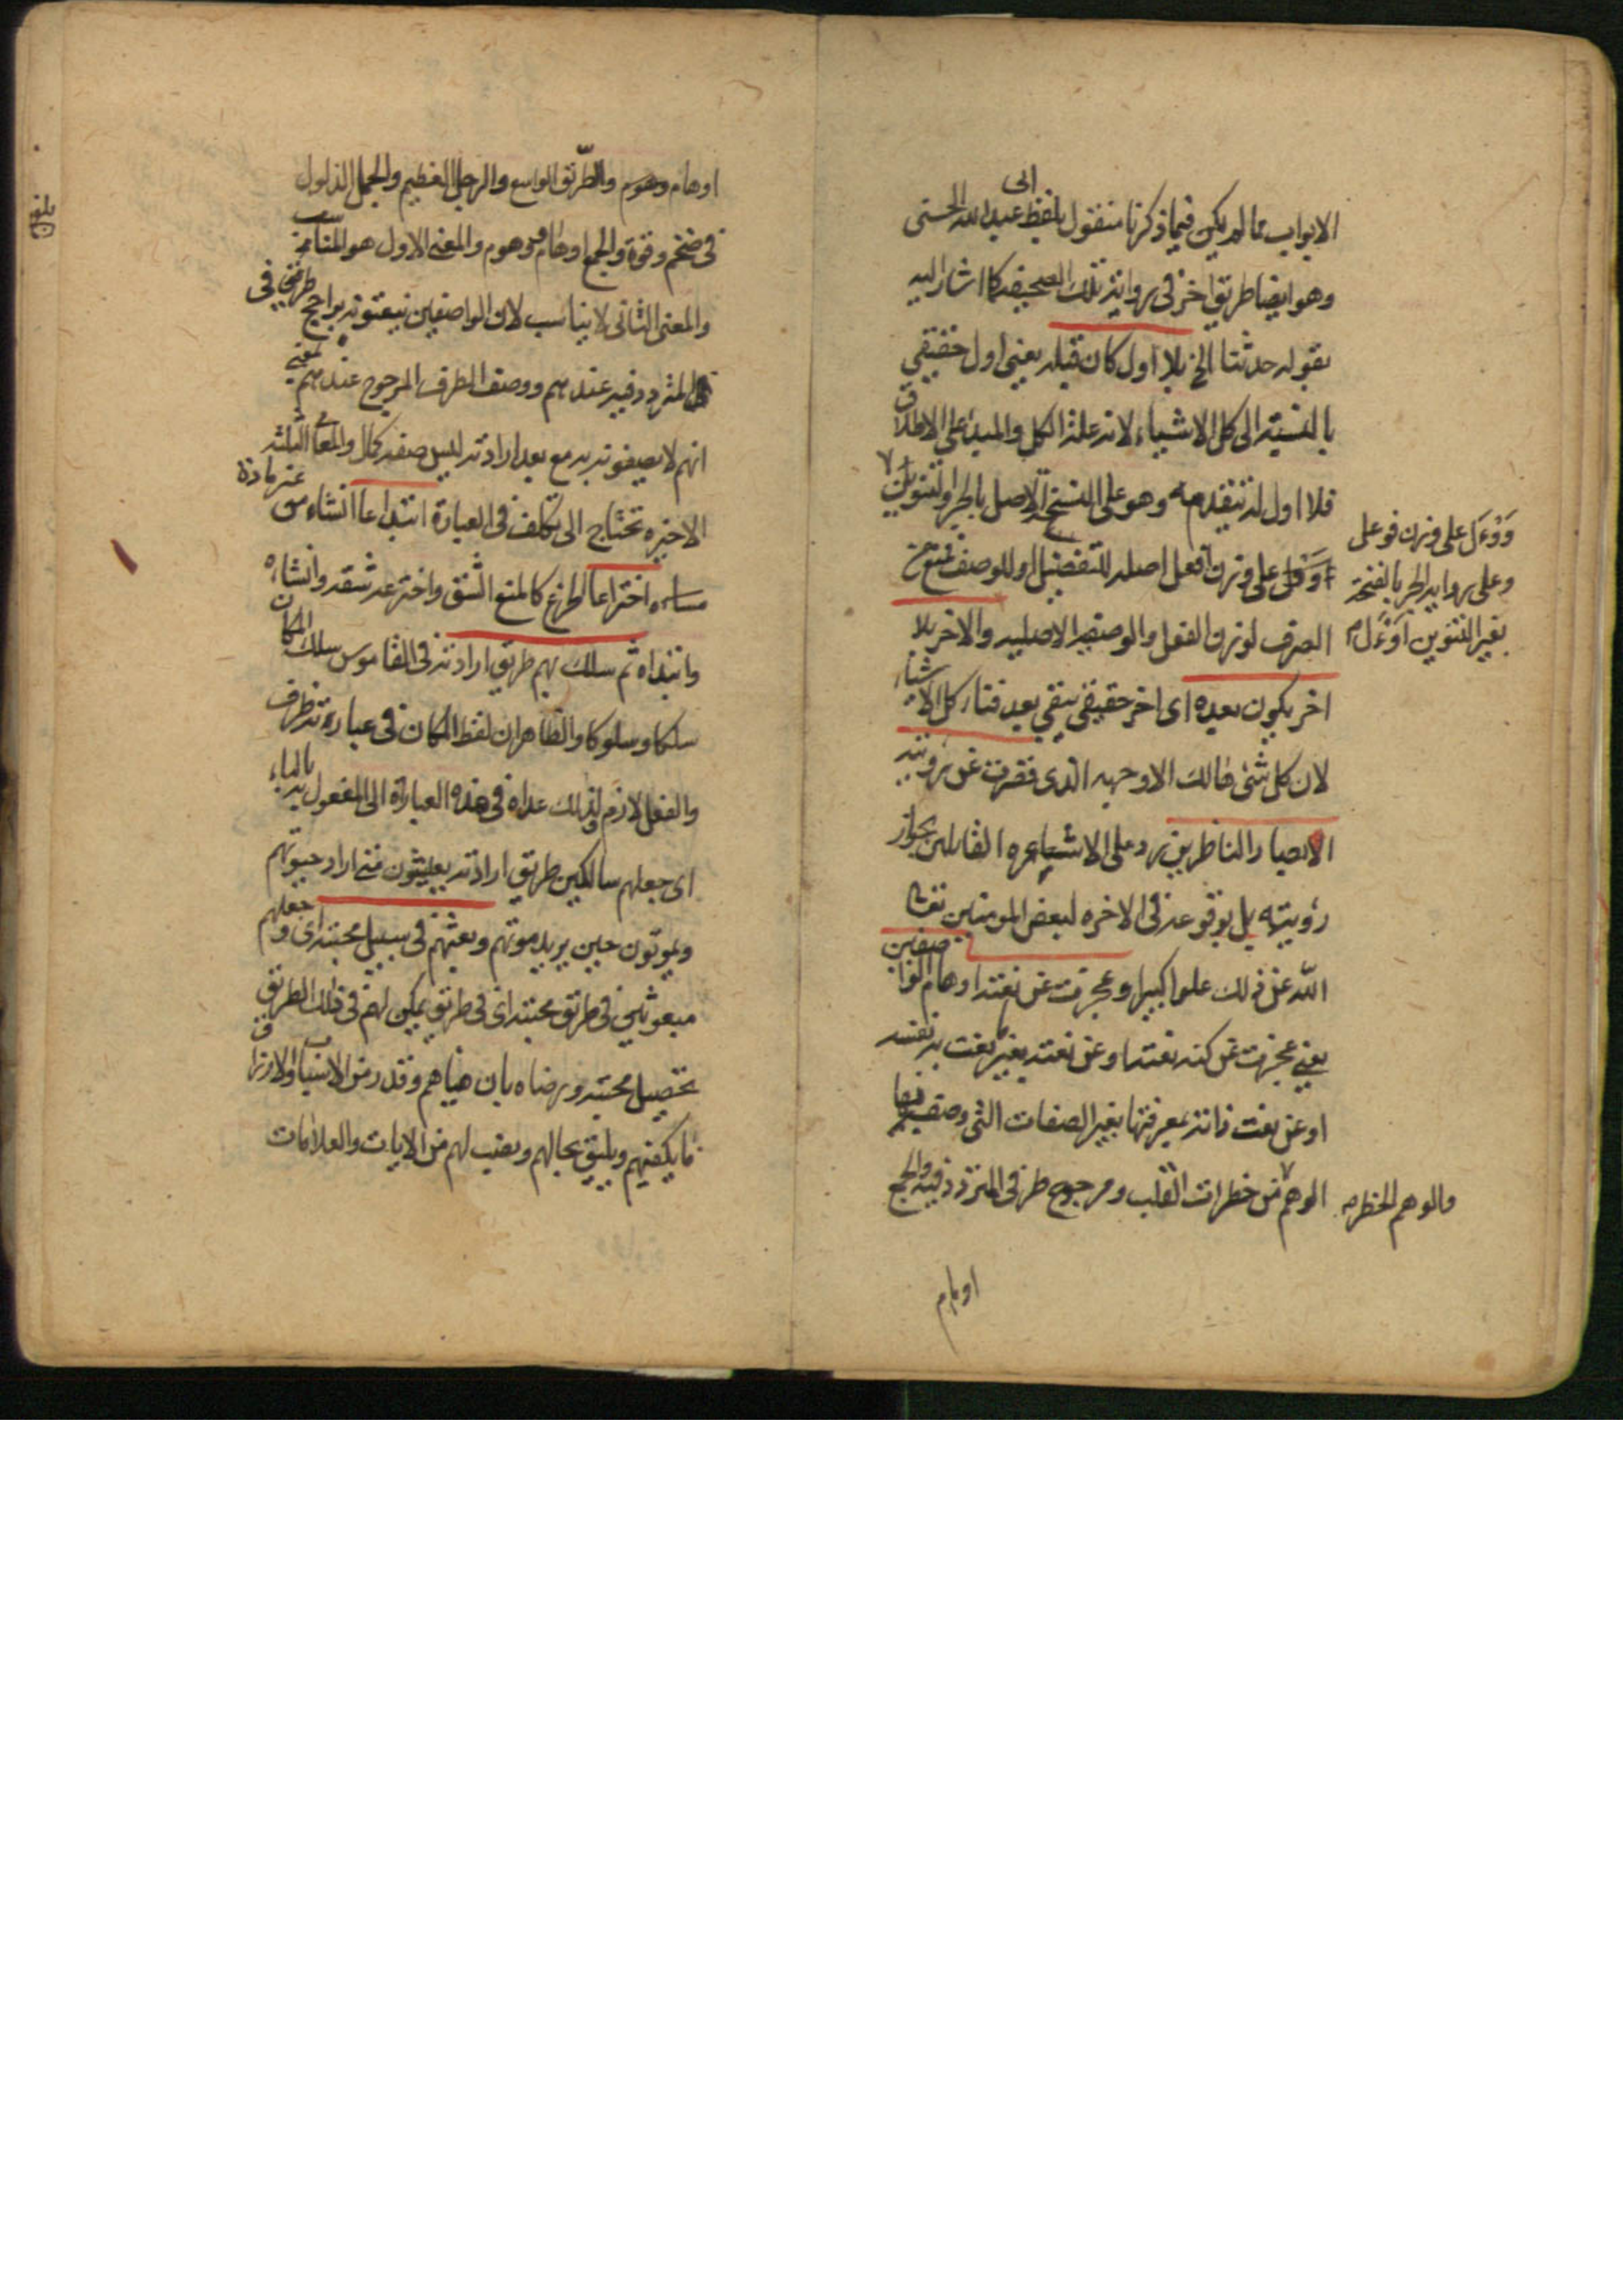 الابواب مما لم يكن فيما ذكرنا منقول بلفظ عبد الله الحسنى
الى
وهو ايضا طريق اخر فى رواية تلك الصحيفه كما اشار اليه
بقوله حدثنا الخ بلا اول كان قبله يعنى اول حقيقي
بالنسبة الى كل الاشياء لانه علة الكل والمبدء على الاطلاق
فلا اول له تتقدمه وهو على النسخة الاصل بالجر والتنوين
على وزن افعل اصله للتفضيل او للوصف فمنع من
الصرف لوزن الفعل والوصفيه الاصليه والاخر بلا
اخر يكون بعده اى اخر حقيقي يبقي بعد فناء كل الاشياء
لان كل شئ هالك الا وجهه الذى قصرت عن رويته
الابصار الناظرين رد على الاشاعره القائلين بجواز
رؤيته بل بوقوعه فى الاخره لبعض المومنين تعالى
الله عن ذلك علوا كبيرا وعجزت عن نعته اوهام الواصفين
يعنى عجزت عن كنه نعته او عن نعته بغير نعت به نفسه
او عن نعت ذاته بمعرفتها بغير الصفات التى وصف بها
الوهم من خطرات القلب ومرجوح طرفى المتردد فيه والجمع
وعلى رواية الجر بالفتحة
بغير التنوين
اوهام
اوهام وهوم والطريق الواسع والرجل العظيم والجمل الذلول
فى ضخم وقوة والجمع اوهام ووهوم والمعنى الاول هو المناسب
والمعنى الثانى لا يناسب لان الواصفين ينعتونه براجح طرفي
المتردد فيه عندهم ووصف الطرف المرجوح عندهم بمعنى
انهم لا يصفونه به مع بعد ارادته ليس صفة كمال والمعانى الثلثه
الاخيره تحتاج الى تكلف فى العبارة ابتداعا انشاء من
غير مادة
اختراعا الخرع كالمنع الشق واخترعه شقه وانشاه
وابتداه ثم سلك بهم طريق ارادته فى القاموس سلك المكان
سلكا وسلوكا والظاهر ان لفظ المكان فى عبارته ظرف
والفعل لازم ولذلك عداه فى هذه العبارة الى المفعول به بالباء
اى جعلهم سالكين طريق ارادته يعيشون متى اراد حيوتهم
ويموتون حين يريد موتهم وبعثهم فى سبيل محبته اى جعلهم
مبعوثين فى طريق محبته اى فى طريق يمكن لهم فى ذلك الطريق
تحصيل محبته ورضاه بان هياهم وقدر من الاسباب والارزاق
ما يكفيهم ويليق بحالهم ونصب لهم من الايات والعلامات